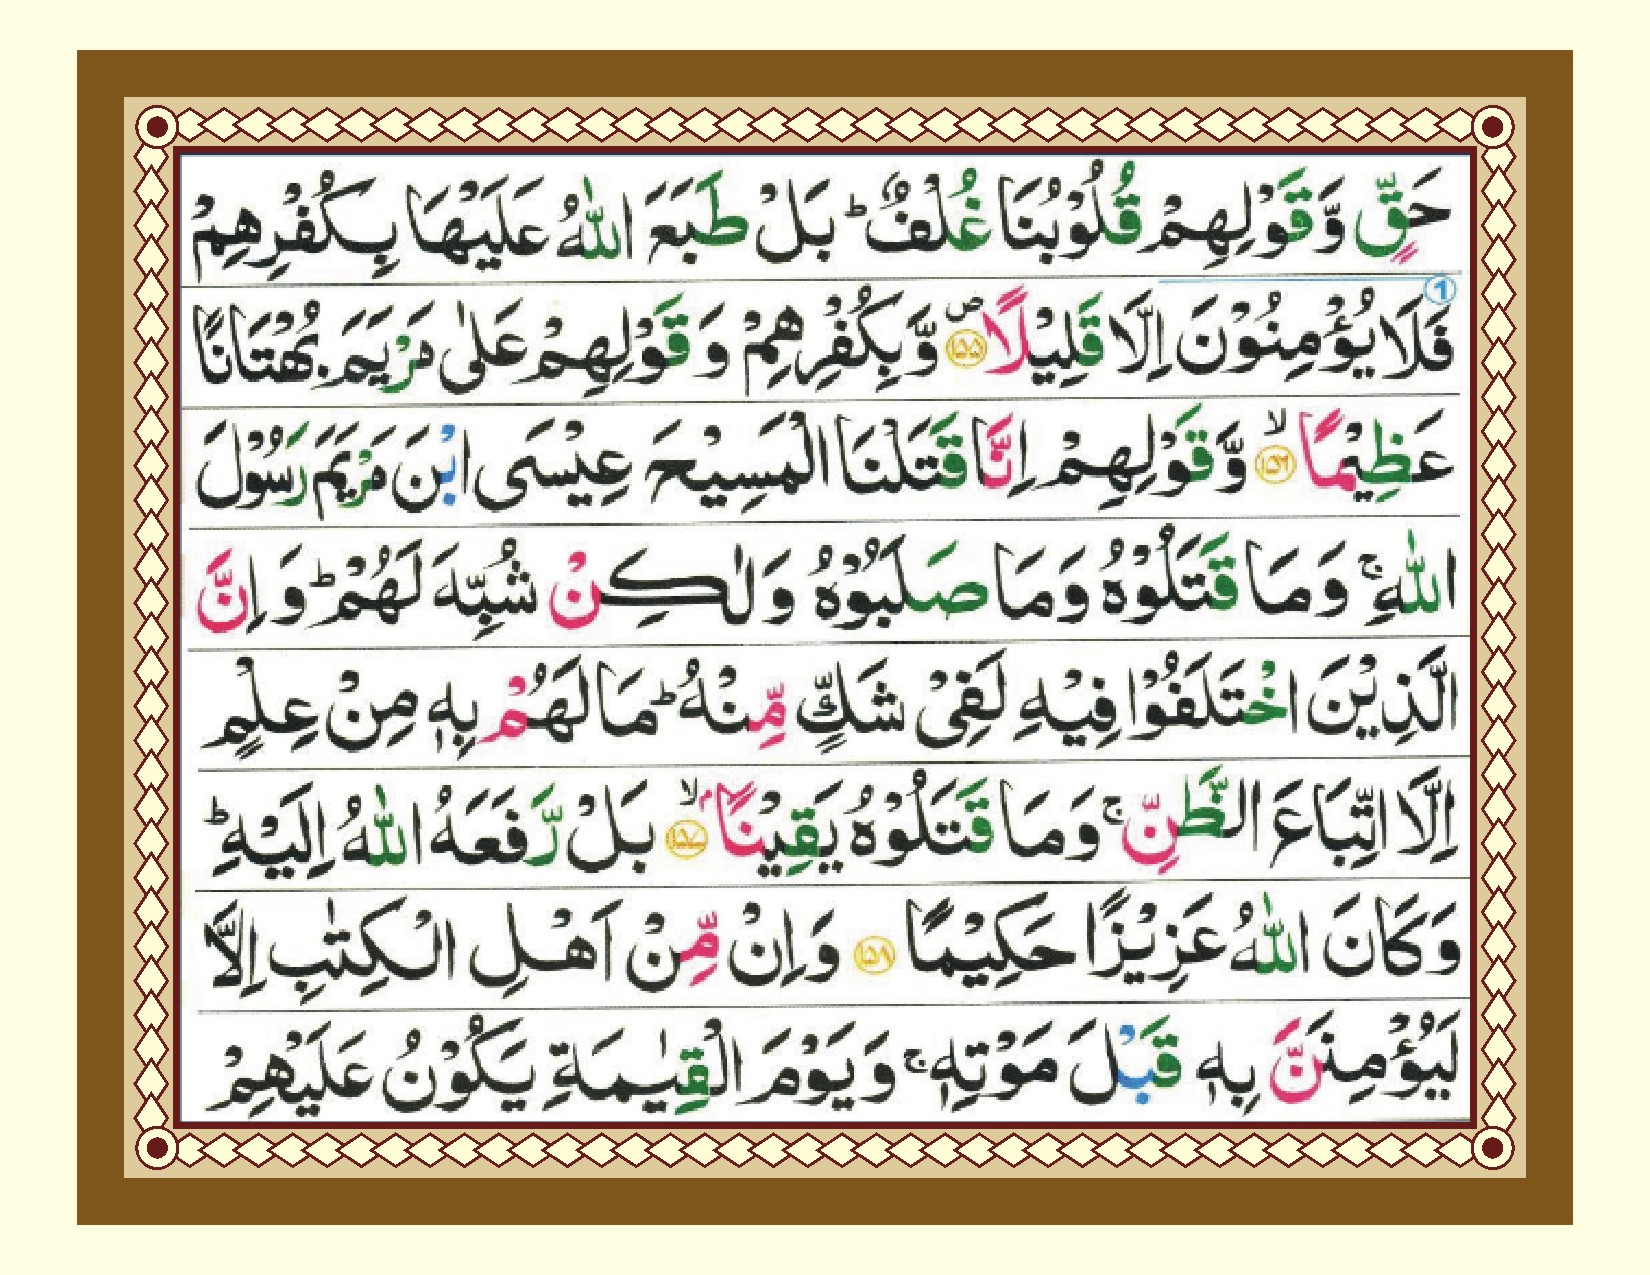 حَقٍّ وَّقَوْلِهِمْ قُلُوْبُنَا غُلْفٌ ؕ بَلْ طَبَعَ اللّٰهُ عَلَيْهَا بِكُفْرِهِمْ
فَلَا يُؤْمِنُوْنَ اِلَّا قَلِيْلًا ۪﴿۱۵۵﴾ وَّبِكُفْرِهِمْ وَقَوْلِهِمْ عَلٰى مَرْيَمَ بُهْتَانًا
عَظِيْمًا ۙ﴿۱۵۶﴾ وَّقَوْلِهِمْ اِنَّا قَتَلْنَا الْمَسِيْحَ عِيْسَى ابْنَ مَرْيَمَ رَسُوْلَ
اللّٰهِ ۚ وَمَا قَتَلُوْهُ وَمَا صَلَبُوْهُ وَلٰكِنْ شُبِّهَ لَهُمْ ؕ وَاِنَّ
الَّذِيْنَ اخْتَلَفُوْا فِيْهِ لَفِىْ شَكٍّ مِّنْهُ ؕ مَا لَهُمْ بِهٖ مِنْ عِلْمٍ
اِلَّا اتِّبَاعَ الظَّنِّ ۚ وَمَا قَتَلُوْهُ يَقِيْنًاۢ ۙ﴿۱۵۷﴾ بَلْ رَّفَعَهُ اللّٰهُ اِلَيْهِ ؕ
وَكَانَ اللّٰهُ عَزِيْزًا حَكِيْمًا ﴿۱۵۸﴾ وَاِنْ مِّنْ اَهْلِ الْكِتٰبِ اِلَّا
لَيُؤْمِنَنَّ بِهٖ قَبْلَ مَوْتِهٖ ۚ وَيَوْمَ الْقِيٰمَةِ يَكُوْنُ عَلَيْهِمْ